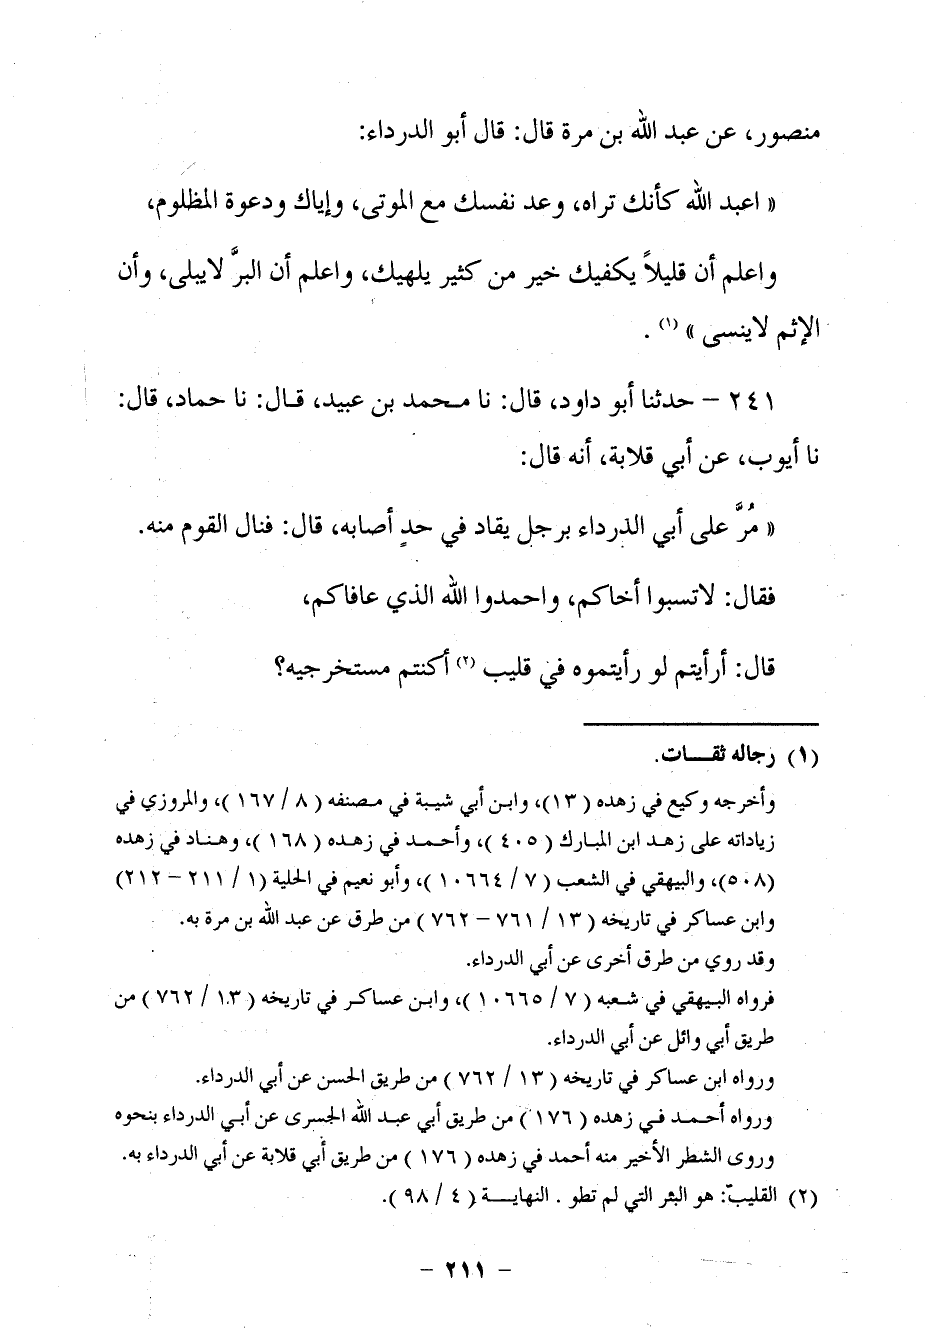 منصور، عن عبد الله بن مرة قال: قال أبو الدرداء:
« اعبد الله كأنك تراه، وعد نفسك مع الموتى، وإياك ودعوة المظلوم،
واعلم أن قليلاً يكفيك خير من كثير يلهيك، واعلم أن البرَّ لايبلى، وأن
الإثم لاينسى » (١) .
٢٤١ – حدثنا أبو داود، قال: نا محمد بن عبيد، قال: نا حماد، قال:
نا أيوب، عن أبي قلابة، أنه قال:
« مُرَّ على أبي الدرداء برجل يقاد في حدٍ أصابه، قال: فنال القوم منه.
فقال: لاتسبوا أخاكم، واحمدوا الله الذي عافاكم،
قال: أرأيتم لو رأيتموه في قليب (٢) أكنتم مستخرجيه؟
(١) رجاله ثقـــات.
وأخرجه وكيع في زهده ( ١٣)، وابن أبي شيبة في مصنفه ( ٨ / ١٦٧ )، والمروزي في
زياداته على زهد ابن المبارك ( ٤٠٥ )، وأحمد في زهده ( ١٦٨ )، وهناد في زهده
(٥٠٨)، والبيهقي في الشعب ( ٧ / ١٠٦٦٤ )، وأبو نعيم في الحلية (١ / ٢١١ – ٢١٢)
وابن عساكر في تاريخه ( ١٣ / ٧٦١ – ٧٦٢ ) من طرق عن عبد الله بن مرة به.
وقد روي من طرق أخرى عن أبي الدرداء.
فرواه البيهقي في شعبه ( ٧ / ١٠٦٦٥ )، وابن عساكر في تاريخه ( ١٣ / ٧٦٢ ) من
طريق أبي وائل عن أبي الدرداء.
ورواه ابن عساكر في تاريخه ( ١٣ / ٧٦٢ ) من طريق الحسن عن أبي الدرداء.
ورواه أحمد في زهده ( ١٧٦ ) من طريق أبي عبد الله الجسرى عن أبي الدرداء بنحوه
وروى الشطر الأخير منه أحمد في زهده ( ١٧٦ ) من طريق أبي قلابة عن أبي الدرداء به.
(٢) القليب: هو البئر التي لم تطو . النهايـــة ( ٤ / ٩٨ ).
– ٢١١ –